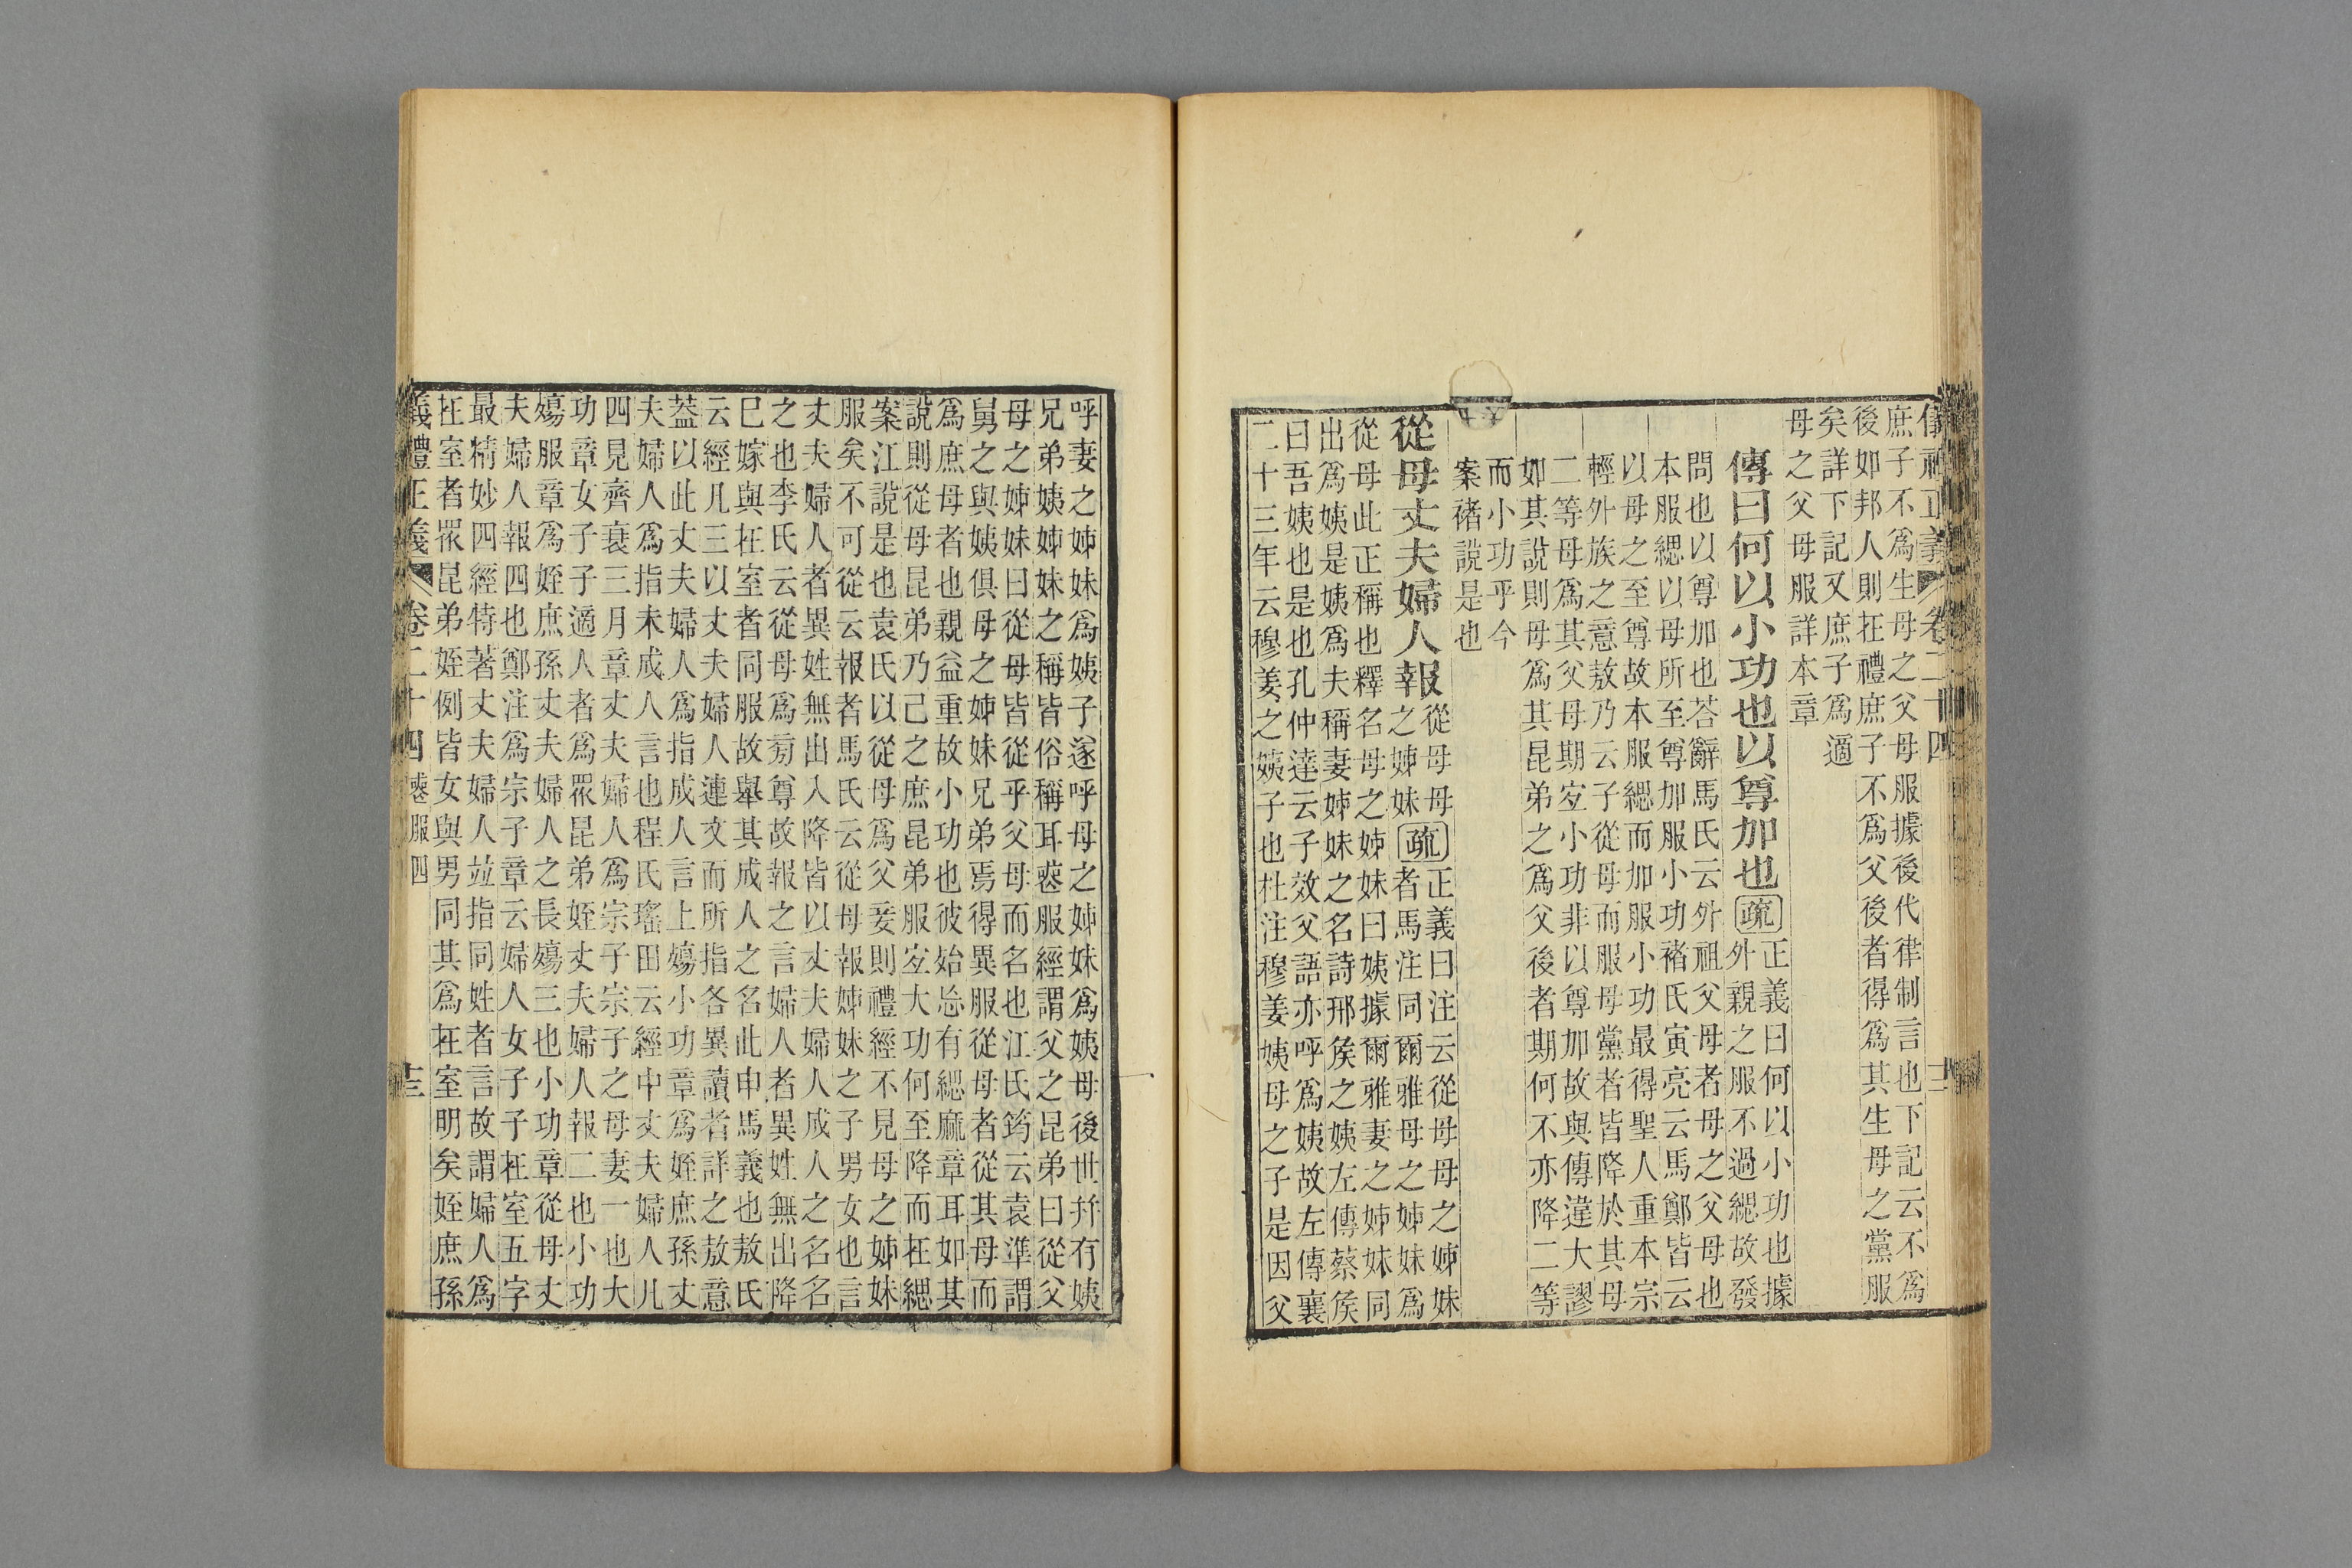 庶子不爲生母之父母服據後代律制言也下記云不爲
後如邦人則在禮庶子不爲父後者得爲其生母之黨服
矣詳下記又庶子爲適
母之父母服詳本章
傳曰何以小功也以尊加也疏正義曰何以小功也據
外親之服不過緦故發
問也以尊加也荅辭馬氏云外祖父母者母之父母也
本服緦以母所至尊加服小功褚氏寅亮云馬鄭皆云
以母之至尊故本服緦而加服小功最得聖人重本宗
輕外族之意敖乃云子從母而服母黨者皆降於其母
二等母爲其父母期宐小功非以尊加故與傳違大謬
如其說則母爲其昆弟之爲父後者期何不亦降二等
而小功乎今
案褚說是也
從母丈夫婦人報從母母
之姊妹疏正義曰注云從母母之姊妹
者馬注同爾雅母之姊妹爲
從母此正稱也釋名母之姊妹曰姨據爾雅妻之姊妹同
出爲姨是姨爲夫稱妻姊妹之名詩邢矦之姨左傳蔡矦
曰吾姨也是也孔仲達云子效父語亦呼爲姨故左傳襄
二十三年云穆姜之姨子也杜注穆姜姨母之子是因父
呼妻之姊妹爲姨子遂呼母之姊妹爲姨母後世幷有姨
兄弟姨姊妹之稱皆俗稱耳喪服經謂父之昆弟曰從父
母之姊妹曰從母皆從乎父母而名也江氏筠云袁準謂
舅之與姨俱母之姊妹兄弟焉得異服從母者從其母而
爲庶母者也親益重故小功也彼始忘有緦麻章耳如其
說則從母昆弟乃己之庶昆弟服宐大功何至降而在緦
案江說是也袁氏以從母爲父妾則禮經不見母之姊妹
服矣不可從云報者馬氏云從母報姊妹之子男女也言
丈夫婦人者異姓無出入降皆以丈夫婦人成人之名名
之也李氏云從母爲旁尊故報之言婦人者異姓無出降
巳嫁與在室者同服故舉其成人之名此申馬義也敖氏
云經凡三以丈夫婦人連文而所指各異讀者詳之敖意
葢以此丈夫婦人爲指成人言上殤小功章爲姪庶孫丈
夫婦人爲指未成人言也程氏瑤田云經中丈夫婦人凡
四見齊衰三月章丈夫婦人爲宗子宗子之母妻一也大
功章女子子適人者爲眾昆弟姪丈夫婦人報二也小功
殤服章爲姪庶孫丈夫婦人之長殤三也小功章從母丈
夫婦人報四也鄭注爲宗子章云婦人女子子在室五字
最精妙四經特著丈夫婦人竝指同姓者言故謂婦人爲
在室者眾昆弟姪例皆女與男同其爲在室明矣姪庶孫
儀禮正義 卷二十四 喪服四 十三